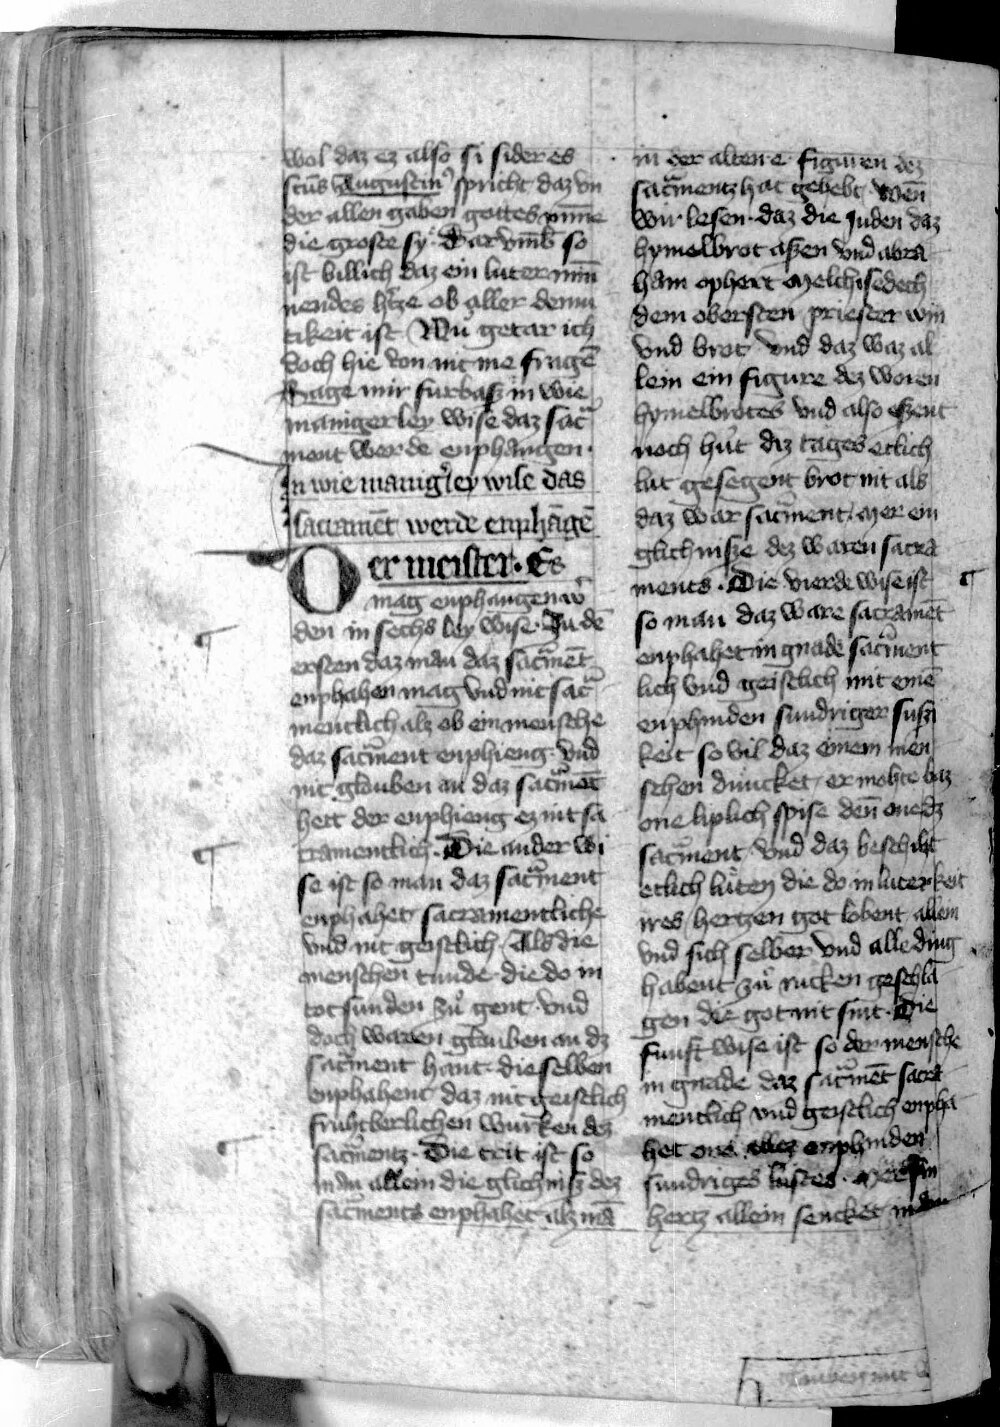 wol daz ez also si sider es
sctus Augustin⁹ spricht daz vn
der allen gaben gottes mīne
die groste sy. Dar vmb so
ist billich daz ein luter min
nendes h'tze ob aller demu
tikeit ist Nu getar ich
doch hie von nit me fragē
Frage mir furbasz in wie
maniger ley wise daz sac̄
ment werde enphangen.
In wie manig'ley wise das
sacramēt werde enphāgē
Der meister. Es
mag enphangen w'
den in sechs ley wise. In dē
ersten daz man daz sac̄mēt
enphahen mag vnd nit sac̄
mentlich alz ob ein mensche
daz sac̄ment enphieng. vnd
nit glauben an daz sac̄mēt
hett der enphieng ez nit sa
cramentlich. Die ander wi
se ist so man daz sac̄ment
enphahet sacramentliche
vnd nit geistlich. Als die
menschen tunde die do in
totsunden zů gent. vnd
doch waren glauben an dz
sac̄ment hānt. die selben
enphahent daz nit geistlich
fruhtberlichen wurken dez
sac̄mentz. Die trit ist so
man allein die glichnisz dez
sac̄ments enphahet alz mā
in der alten e. figuren dez
sac̄mentz hat gehebt. wen̄
wir lesen. daz die Juden daz
hymelbrot aszen vnd abra
ham ophert Melchisedech
dem obersten priester win
vnd brot. vnd daz waz al
lein ein figure dez woren
hymelbrotes vnd also eszent
noch hút diz tages etlich
lút gesegent brot nit als
daz war sac̄ment. Mer ein
glichnisze dez waren sacra
ments. Die vierde wise ist
so man daz ware sacramēt
enphahet in gnade sac̄ment
lich vnd geistlich mit einē
enphinden sundriger suszi
keit so vil daz einem men
schen duncket, er mohte baz
one liplich spise den̄ one dz
sac̄ment. vnd daz beschiht
etlich lúten die do in luterkeit
ires hertzen got lobent allein
vnd sich selber vnd alle ding
habent zů rucken geschla
gen die got nit sint. Die
funft wise ist so der mensche
in gnade daz sac̄mēt sacra
mentlich vnd geistlich enpha
het one allez enphinden
sundriges lustes. Mer sin
hertz allein sencket in